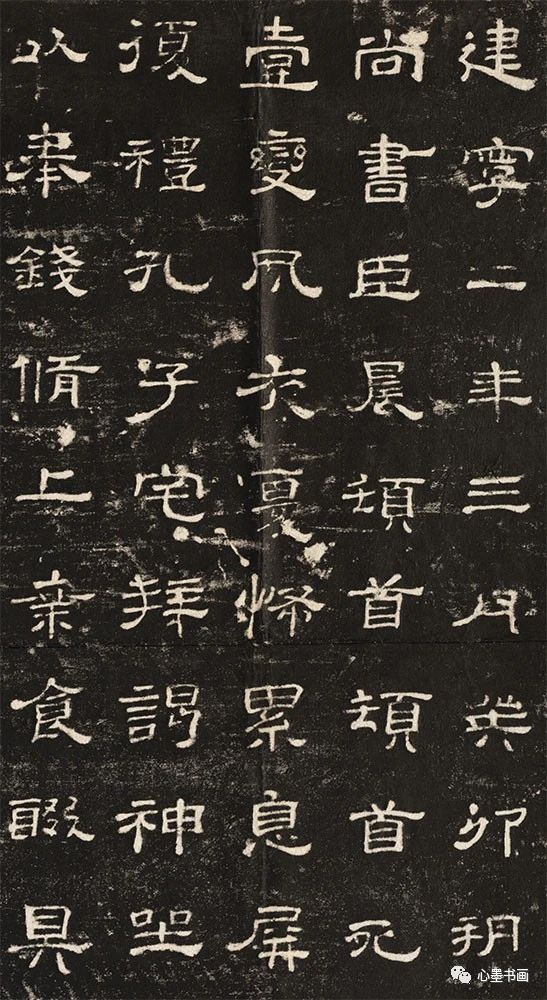 建寧二年三月癸卯朔
尚書臣晨頓首頓首死
壹變夙夜憂怖累息屏
復禮孔子宅拜謁神坐
以奉錢脩上案食醊具
心墨书画